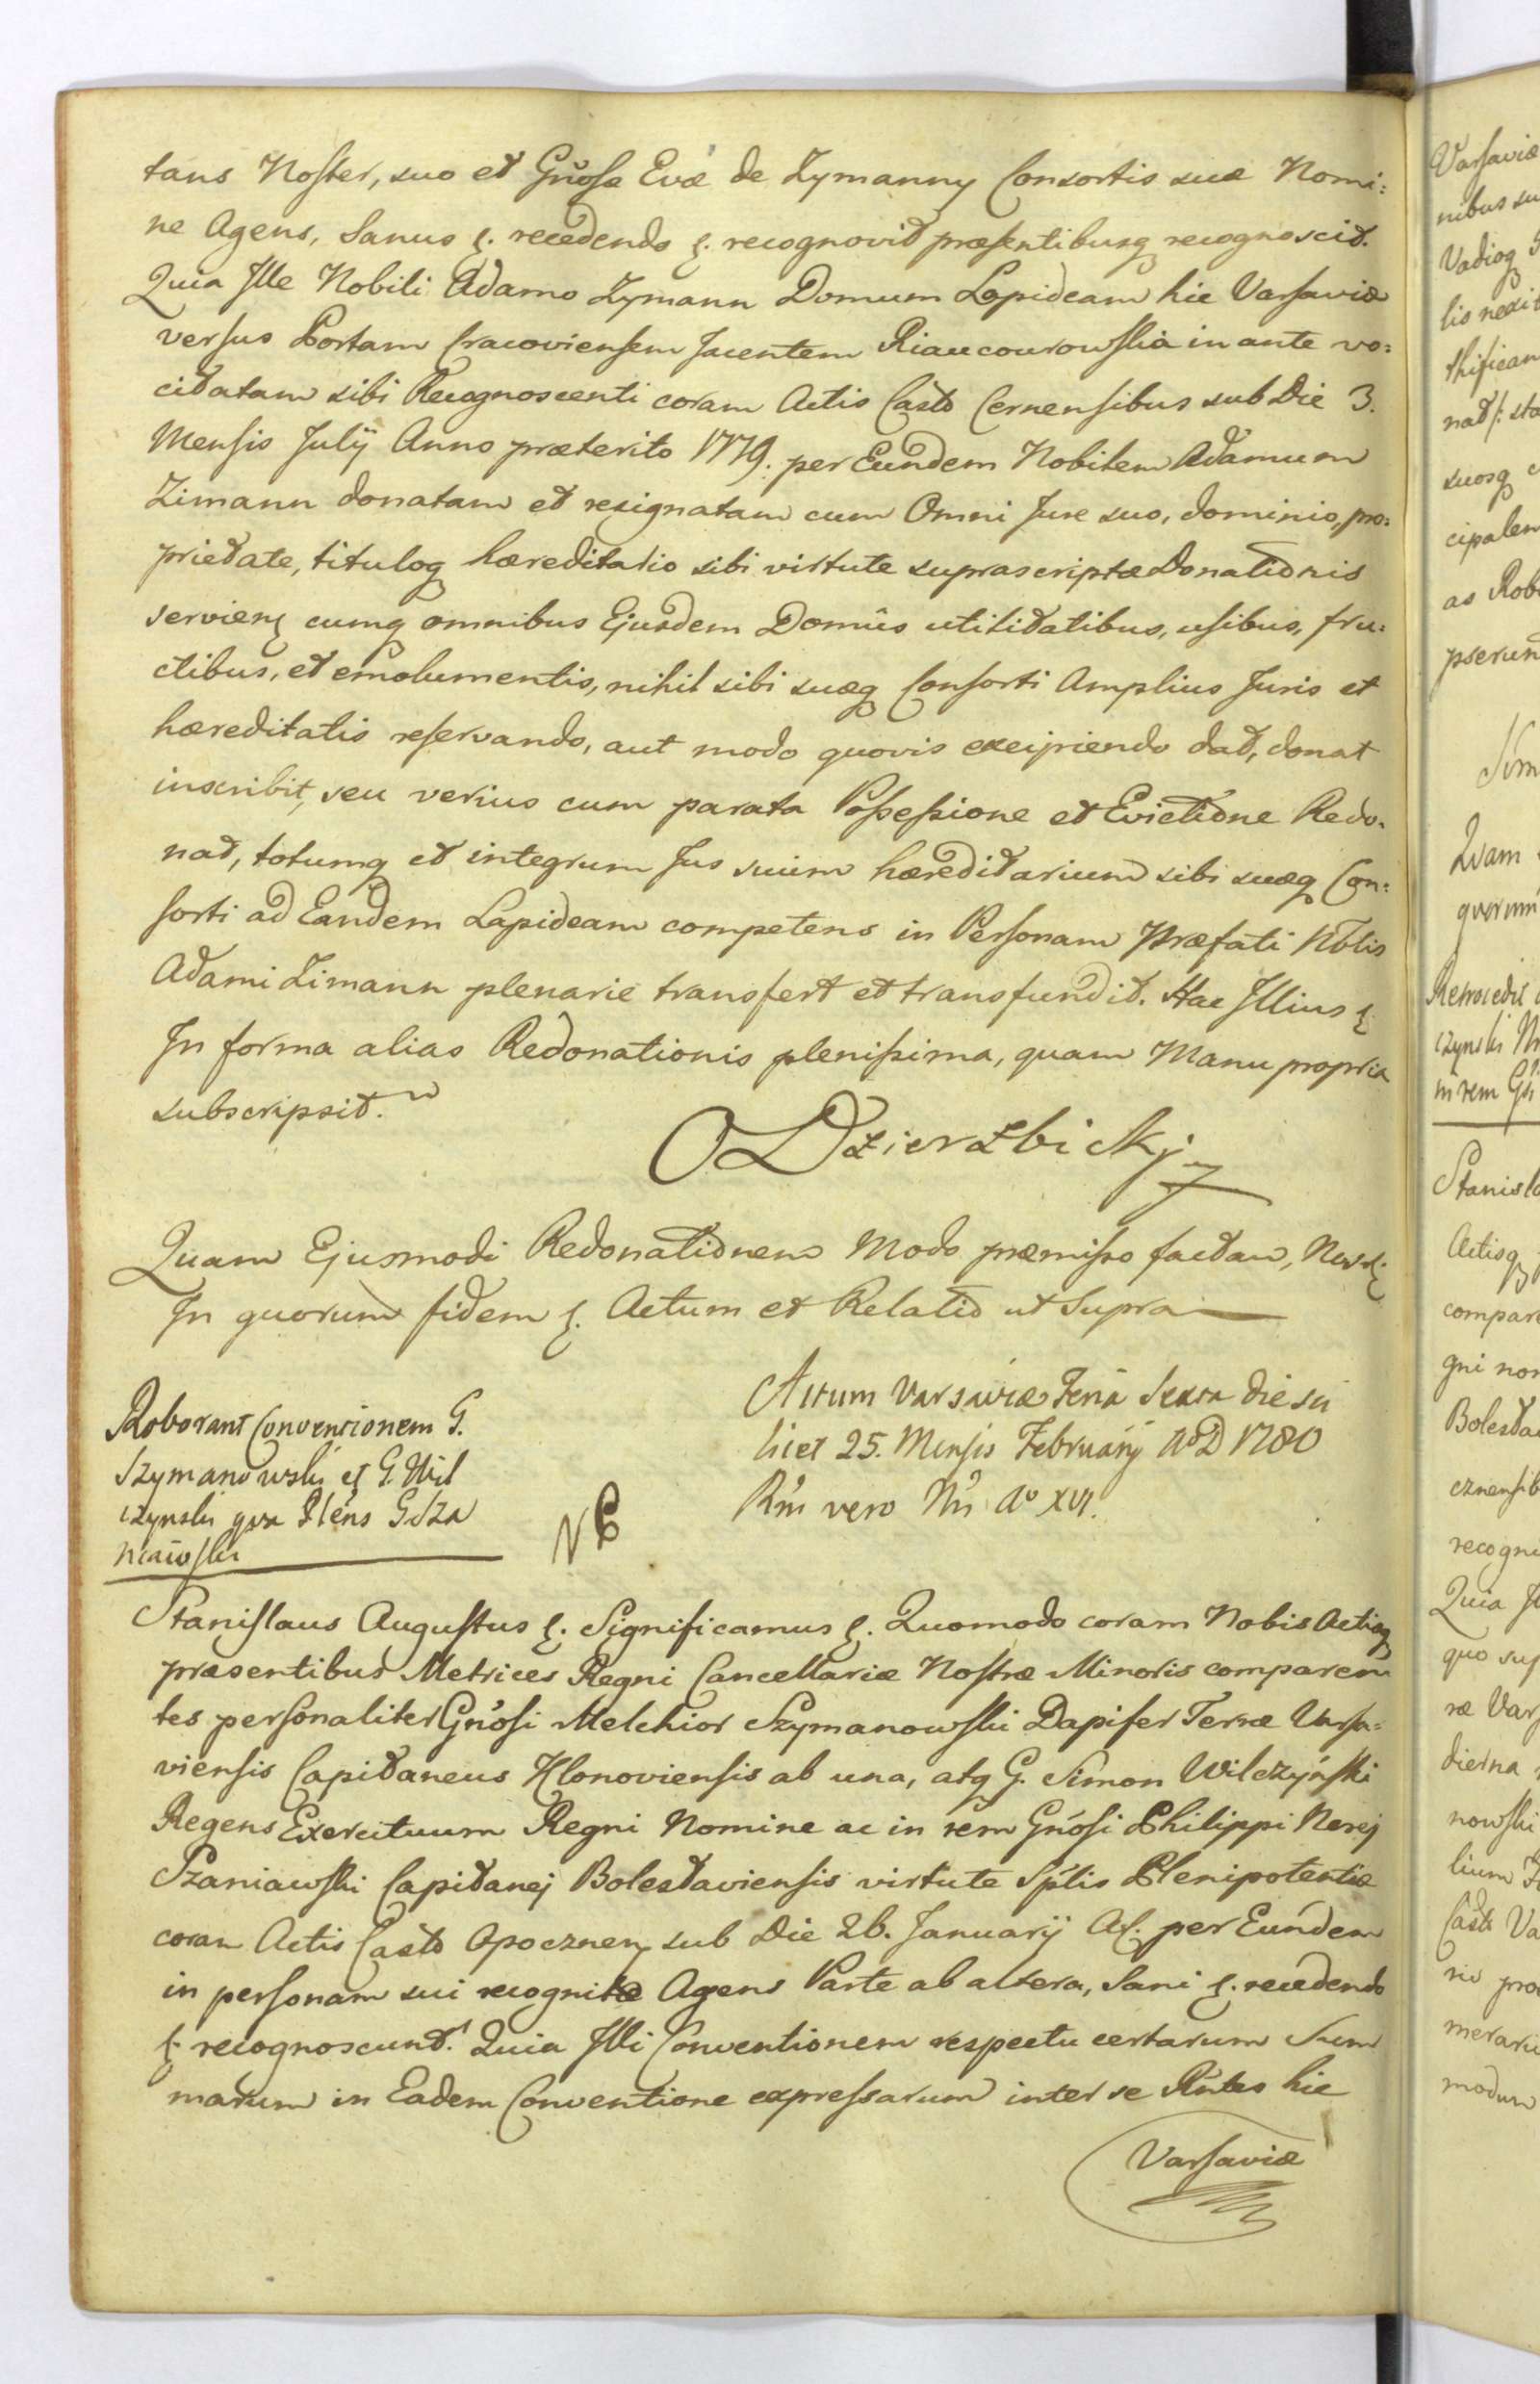 tans Noster, suo et Gnosæ Evæ de Zymanny Consortis suæ Nomi:
ne Agens, Sanus &. recedendo &. recognovit præsentibusq recognoscit.
Quia Ille Nobili Adamo Zymann Domum Lapideam hic Varsaviæ
versus Portam Cracoviensem Jacentem Riaucourowska in ante vo:
citatam sibi Recognoscenti coram Actis Castr Cernensibus sub Die 3.
Mensis Julij Anno præterito 1779. per Eundem Nobilem Adamum
Zimann donatam et resignatam cum Omni Jure suo, dominio, pro:
prietate, tituloq hæreditario sibi virtute suprascriptæ Donationis
servien cumq omnibus Ejusdem Domûs utilitatibus, usibus, fru:
ctibus, et emolumentis, nihil sibi suæq Consorti Amplius Juris et
hæreditatis reservando, aut modo quovis excipiendo dat, donat
inscribit, seu verius cum parata Possessione et Evictione Redo:
nat, totumq et integrum Jus suum hæreditarium sibi suæq Con:
sorti ad Eandem Lapideam competens in Personam Præfati Nblis
Adami Zimann plenarie transfert et transfundit. Hac Illius &
In forma alias Redonationis plenissima, quam Manu propria
subscripsit.
Dzierzbicki
Quam Ejusmodi Redonationem Modo præmisso factam, Nos &
In quorum fidem &. Actum et Relatio ut Supra
Roborant Conventionem G.
Szymanowski et G. Wil
czynski qua Plens G. Sza
niawski
NB
Actum Varsaviæ Feria Sexta die sci
licet 25. Mensis Februarij AoD 1780
Rni vero Nri Ao XVI.
Stanislaus Augustus &. Significamus &. Quomodo coram Nobis Actisq
præsentibus Metrices Regni Cancellariæ Nostræ Minoris comparen
tes personaliter Gnosi Melchior Szymanowski Dapifer Terræ Varsa:
viensis Capitaneus Klonoviensis ab una, atq G. Simon Wilczyński
Regens Exercituum Regni Nomine ac in rem Gnosi Philippi Nerej
Szaniawski Capitanej Bolestaviensis virtute Splis Plenipotentiæ
coram Actis Castr Opocznen sub Die 26. Januarij A&. per Eundem
in personam sui recognitæ Agens Parte ab altera, Sani &. recedendo
&. recognoscunt. Quia Illi Conventionem respectu certarum Sum
marum in Eadem Conventione expressarum inter se Rntes hic
Varsaviæ
Varsaviæ
nibus su
Vadioq
lis nexit
thifican
nat/: sta
suosq
cipalem
as Robo
pserun
Quam
quorum
Retrocedit
czynski
in rem G
Stanisla
Actisq
compare
gni non
Bolesta
cznensib
recogno
Quia Il
quo sup
ræ Vars
dierna
nowski
lium
Castr Va
rio pro
merari
modum